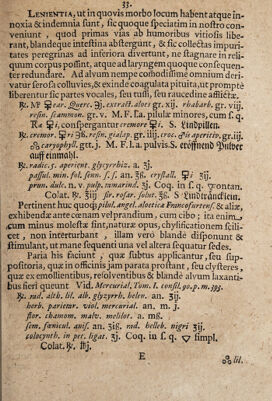 33.
LENIENTIA, ut in quovis morbo locum habent atque in-
noxia & indemnia sunt, sic quoque speciatim in nostro con-
veniunt, quod primas vias ab humoribus vitiosis libe-
rant, blandeque intestina abstergunt, & sic collectas impuri-
tates peregrinas ad inferiora divertunt, ne stagnare in reli-
quum corpus possint, atque ad laryngem quoque consequen-
ter redundare. Ad alvum nempe comodissime omnium deri-
vatur serosa colluvies, & exinde coagulata pituita, ut prompte
liberentur sic partes vocales, seu tussi, seu raucedine afflictæ.
extract. aloes gr. xij. rhabarb. gr. viij.
resin. scammon. gr. v. M. F. l. a. pilulæ minores, cum s. q.
conspergantur cremore S. Lindpillen.
cremor. resin. gialap. gr. iiij. croc. aperitiv. gr. iij.
caryophyll. gtt. j. M. F. l. a. pulvis. S. eröffnend Pulver
auff einmahl.
℞. radic. 5. aperient. glycyrrhiz. a. ʒj.
passul. min. fol. senn. s. s. an. ʒß. crystall. ʒij.
prun. dulc. n. v. pulp. tamarind. ℥j. Coq. in s. q. pontan.
Colat. ℥iij syr. rosar. solut. ℥ß. S. Lindträncklein.
Pertinent huc quoq; pilul. angel. aloetica Francofurtens. & aliæ,
exhibendæ ante cœnam vel prandium, cum cibo; ita enim
cum minus molestæ sint, naturæ opus, chylificationem scili-
cet, non interturbant, illam vero blande disponunt &
stimulant, ut mane sequenti una vel altera sequatur sedes.
Paria his faciunt, quæ subtus applicantur, seu sup-
positoria, quæ in officinis jam parata prostant, seu clysteres,
quæ ex emollientibus, resolventibus & blande alvum laxanti-
bus fieri queunt Vid. Mercurial, Tom. 1. consil. 90. p. m. 395.
℞. rad. alth. lil. alb. glyzyrrh. helen. an. ʒij.
herb. parietar. viol. mercurial. an. m. j.
flor. chamom. malv. melilot. a. mß.
sem. fœnicul. anis. an. ʒiß. rad. helleb. nigri ʒij.
colocynth. in pet. ligat. ʒj. Coq. in s. q. simpl.
Colat.
E
lil.